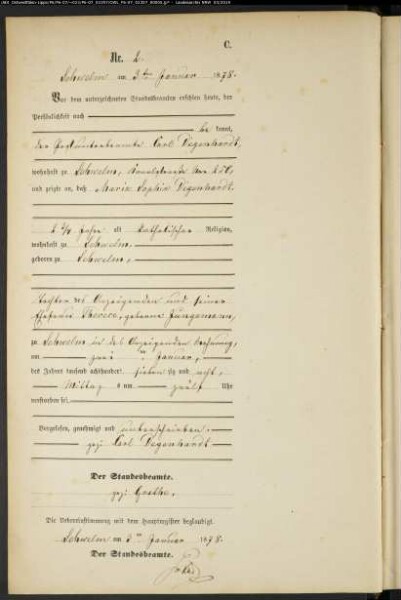 C.
Nr. 2.
Schwelm am 3ten Januar 1878.
Vor dem unterzeichneten Standesbeamten erschien heute, der
Persönlichkeit nach
be kannt,
der Carl Degenhardt,
wohnhaft zu Schwelm,
und zeigte an, daß Maria Sophia Degenhardt,
alt katholischer Religion,
wohnhaft zu Schwelm
geboren zu Schwelm,
Tochter des Anzeigenden und seiner
Ehefrau geborene Jungemann,
zu Schwelm in des Anzeigenden Wohnung,
am zwei ten Januar,
des Jahres tausend achthundert sieben zig und acht,
Mittag s um zwölf Uhr
verstorben sei.
Vorgelesen, genehmigt und unterschrieben.
gez: Carl Degenhardt
Der Standesbeamte.
gez:
Die Uebereinstimmung mit dem Hauptregister beglaubigt
Schwelm am 3ten Januar 1878.
Der Standesbeamte.